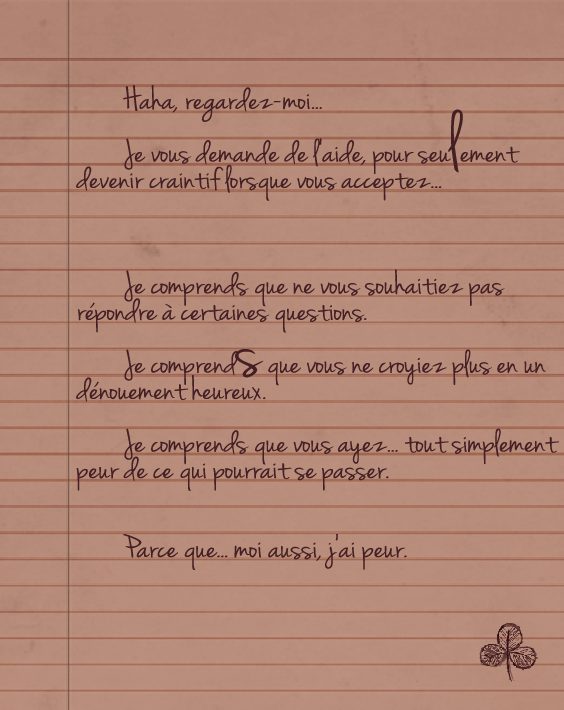 Haha, regardez-moi...
Je vous demande de l'aide, pour seulement
devenir craintif lorsque vous acceptez...
Je comprends que ne vous souhaitiez pas
répondre à certaines questions.
Je comprendS que vous ne croyiez plus en un
dénouement heureux.
Je comprends que vous ayez... tout simplement
peur de ce qui pourrait se passer.
Parce que... moi aussi, j'ai peur.